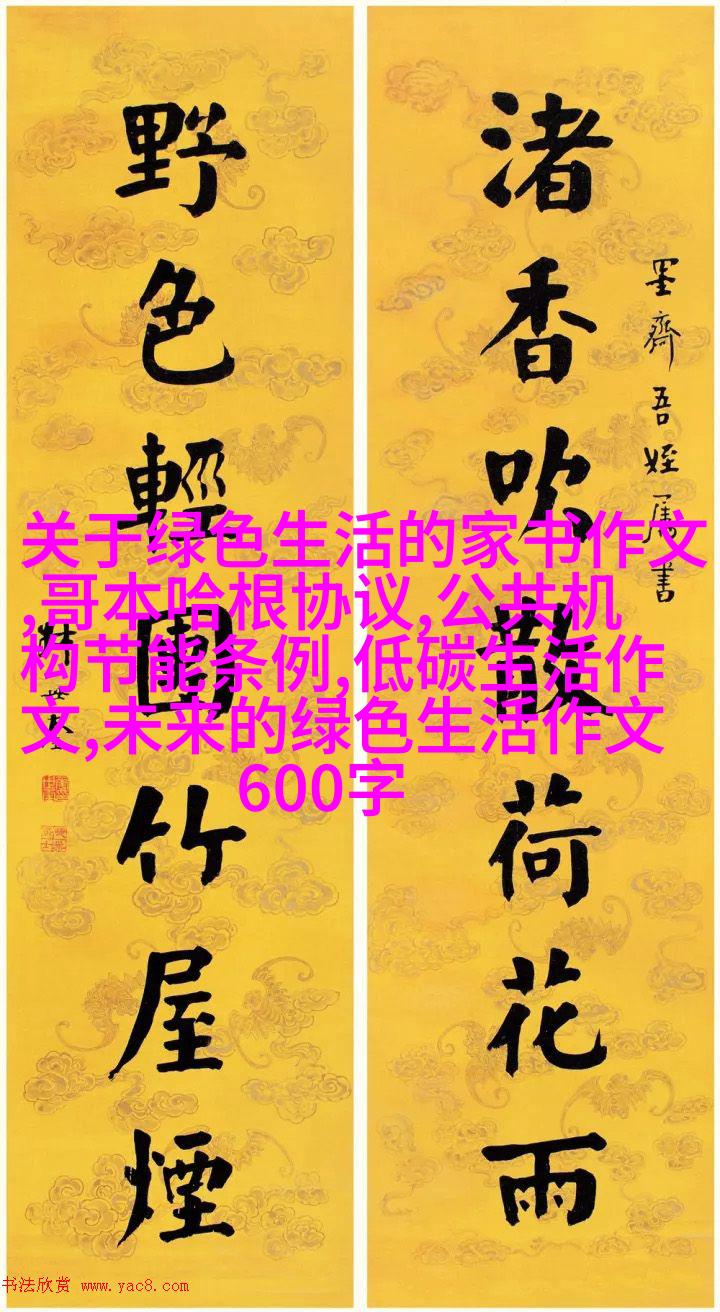 渚香吹散荷花雨
墨齋吾姪屬書
野色輕圍竹屋煙
关于绿色生活的家书作文
,哥本哈根协议,公共机
构节能条例,低碳生活作
文,未来的绿色生活作文
600字
书法欣赏 www.yac8.com